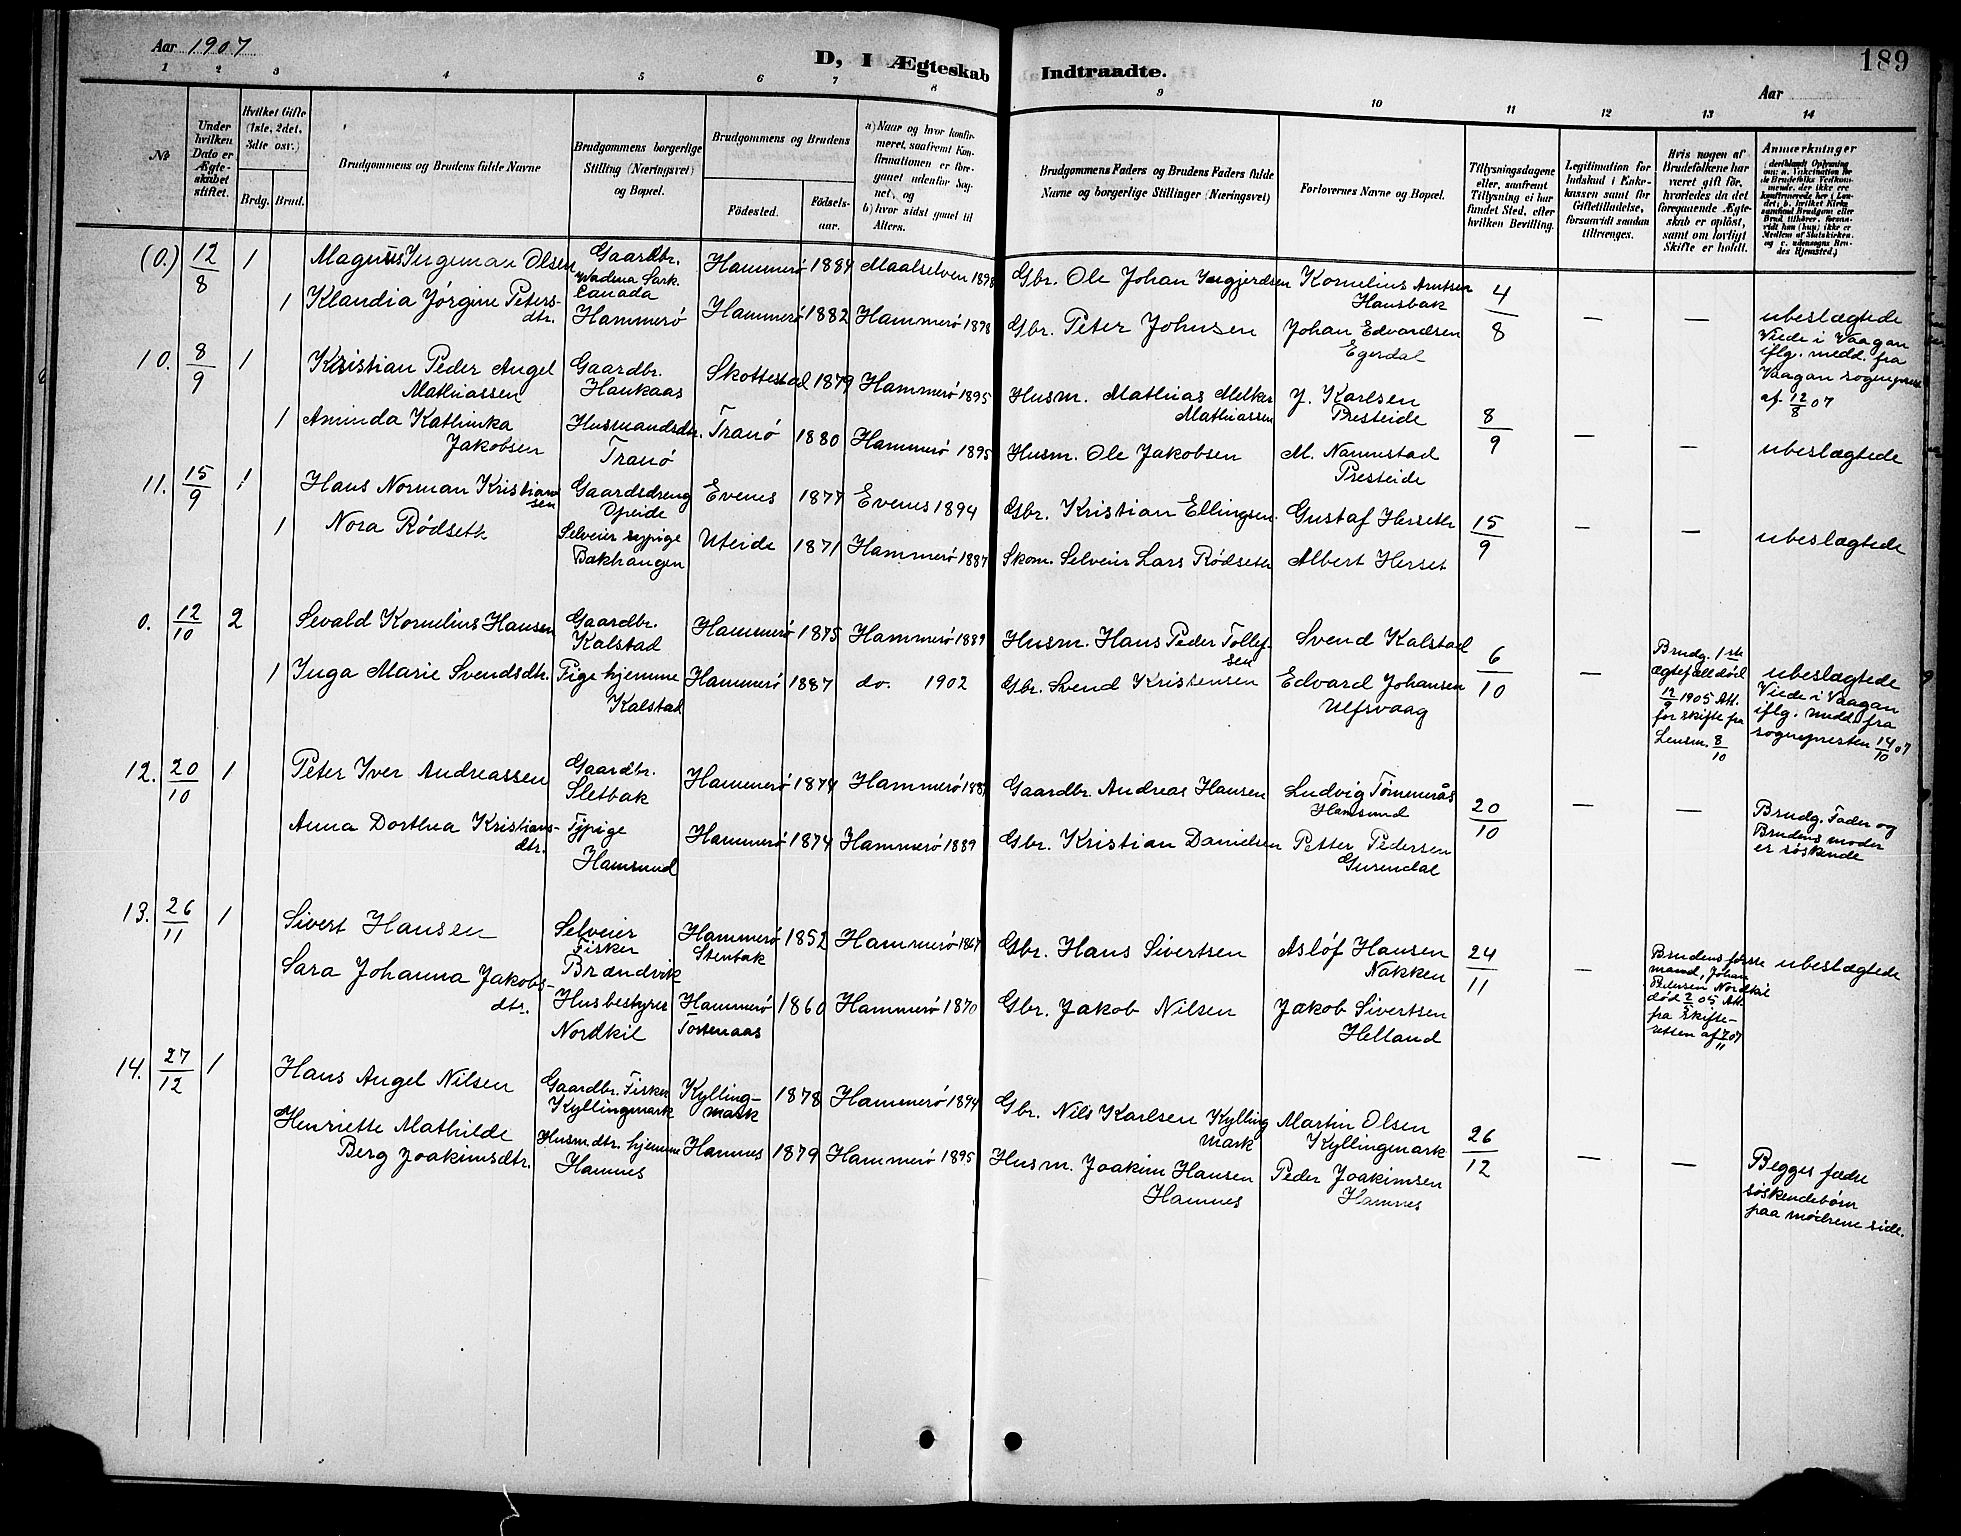 Aar 1907
D, I Ægteskab Indtraadte.
189
Aar
1 2 3 4 5 6 7 8 9 10 11 12 13 14
No
Under hvilken Dato er Ægteskabet stiftet.
Hvilket Gifte (1ste, 2det, 3die osv.)
Brdg. Brud.
Brudgommens og Brudens fulde Navne
Brudgommens borgerlige Stilling (Næringsvei) og Bopæl.
Brudgommens og Brudens
Fødested.
Fødselsaar.
a) Naar og hvor konfirmeret, saafremt Konfirmationen er foregaaet udenfor Sognet, og
b) hvor sidst gaaet til Alters.
Brudgommens Faders og Brudens Faders fulde Navne og borgerlige Stillinger (Næringsvei)
Forlovernes Navne og Bopæl.
Tillysningsdagene eller, saafremt Tillysning ei har fundet Sted, efter hvilken Bevilling.
Legitimation for Indskud i Enkekassen samt for Giftetilladelse, forsaavidt saadan tiltrænges.
Hvis nogen af Brudefolkene har været gift før, hvorledes da det foregaaende Ægteskab er opløst, samt om lovligt Skifte er holdt.
Anmærkninger
(0.) 12/8 1 Magnus Ingeman Olsen Gaardbr. Wadena Sask. Canada Hammerø 1884 Maalselven 1898 Gbr. Ole Johan Ingjerdsen Kornelius Arntsen Hansbak 4/8
1 Klaudia Jørgine Petersdtr. Hammerø Hammerø 1882 Hammerø 1898 Gbr. Peter Johnsen Johan Edvardsen Egerdal — — ubeslægtede
Viede i Vaagan
iflg. medd. fra
Vaagan sogneprest
af 12/8 07
10. 8/9 1 Kristian Peder Angel Mathiassen Gaardbr. Haukaas Skottestad 1879 Hammerø 1895 Husm. Mathias Melker Mathiassen J. Karlsen Presteide 8/9
1 Aminda Kathinka Jakobsen Husmandsdtr. Tranø Tranø 1880 Hammerø 1895 Husm. Ole Jakobsen M. Nannestad Presteide — — ubeslægtede
11. 15/9 1 Hans Norman Kristiansen Gaardsdreng Opeide Evenes 1877 Evenes 1894 Gbr. Kristian Ellingsen Gustaf Herseth 15/9
1 Nora Rødseth Selveier sypige Bakhaugen Uteide 1871 Hammerø 1887 Skom. Selveier Lars Rødseth Albert Herset — — ubeslægtede
0. 12/10 2 Sevald Kornelius Hansen Gaardbr. Kalstad Hammerø 1875 Hammerø 1889 Husm. Hans Peder Tollefsen Svend Kalstad 6/10
1 Inga Marie Svendsdtr. Pige hjemme Kalstad Hammerø 1887 do. 1902 Gbr. Svend Kristensen Edvard Johansen Ulfsvaag —
Brudg. 1ste
ægtefælle død
12/9 1905 Att.
for skifte fra
Lensm. 8/10
ubeslægtede
Viede i Vaagan
iflg. medd. fra
sognepresten 14/10 07
12. 20/10 1 Peter Iver Andreassen Gaardbr. Sletbak Hammerø 1874 Hammerø Gaardbr. Andreas Hansen Ludvig Tømmerås Hamsund 20/10
Anna Dorthea Kristiansdtr. Tjpige Hamsund Hammerø 1874 Hammerø 1889 Gbr. Kristian Danielsen Petter Pedersen — —
Brudg. Fader og
Brudens moder
er søskende
13. 26/11 1 Sivert Hansen Selveier Fisker Brændvik Hammerø Stenbak 1852 Hammerø 1867 Gbr. Hans Sivertsen Asløf Hansen Nakken 24/11
Sara Johanna Jakobsdtr. Husbestyrer Nordkil Hammerø 1860 Hammerø 1870 Gbr. Jakob Nilsen Jakob Sivertsen Helland —
Brudens første
mand, Johan
Pedersen Nordkil
død 05 Att.
fra skifteretten af 7/11 07
ubeslægtede
14. 27/12 1 Hans Angel Nilsen Gaardbr. Fisker Kyllingmark Kyllingmark 1878 Hammerø 1894 Gbr. Nils Karlsen Kyllingmark Martin Olsen Kyllingmark 26/12
Henriette Mathilde Berg Joakimsdtr. Husmdtr. hjemme Hamnes Hamnes 1879 Hammerø 1895 Husm. Joakim Hansen Hamnes Peder Joakimsen Hamnes — —
Begges fædre
søskendebørn
paa mødrene side.